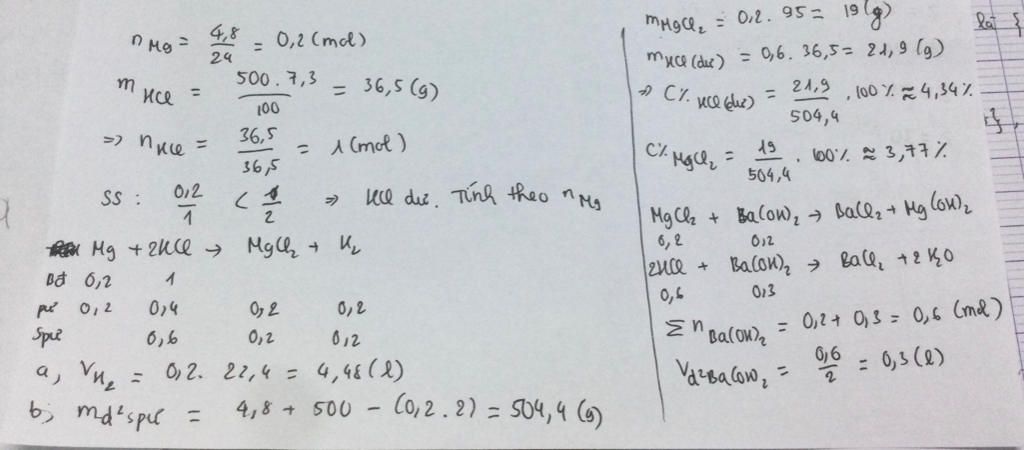 n Mg = 4,8/24 = 0,2 (mol)
m HCl = 500 . 7,3/100 = 36,5 (g)
=> n HCl = 36,5/36,5 = 1 (mol)
SS : 0,2/1 < 1/2 => HCl dư. Tính theo n Mg
Mg + 2HCl → MgCl2 + H2
Bđ 0,2 1
pư 0,2 0,4 0,2 0,2
Spư 0,6 0,2 0,2
a, V H2 = 0,2 . 22,4 = 4,48 (l)
b, m d² spư = 4,8 + 500 - (0,2 . 2) = 504,4 (g)
m MgCl2 = 0,2 . 95 = 19 (g)
m HCl (dư) = 0,6 . 36,5 = 21,9 (g)
=> C% HCl (dư) = 21,9/504,4 . 100% ≈ 4,34%
C% MgCl2 = 19/504,4 . 100% ≈ 3,77%
MgCl2 + Ba(OH)2 → BaCl2 + Mg(OH)2
0,2 0,2
2HCl + Ba(OH)2 → BaCl2 + 2H2O
0,6 0,3
Σ n Ba(OH)2 = 0,2 + 0,3 = 0,6 (mol)
V d² Ba(OH)2 = 0,6/2 = 0,3 (l)